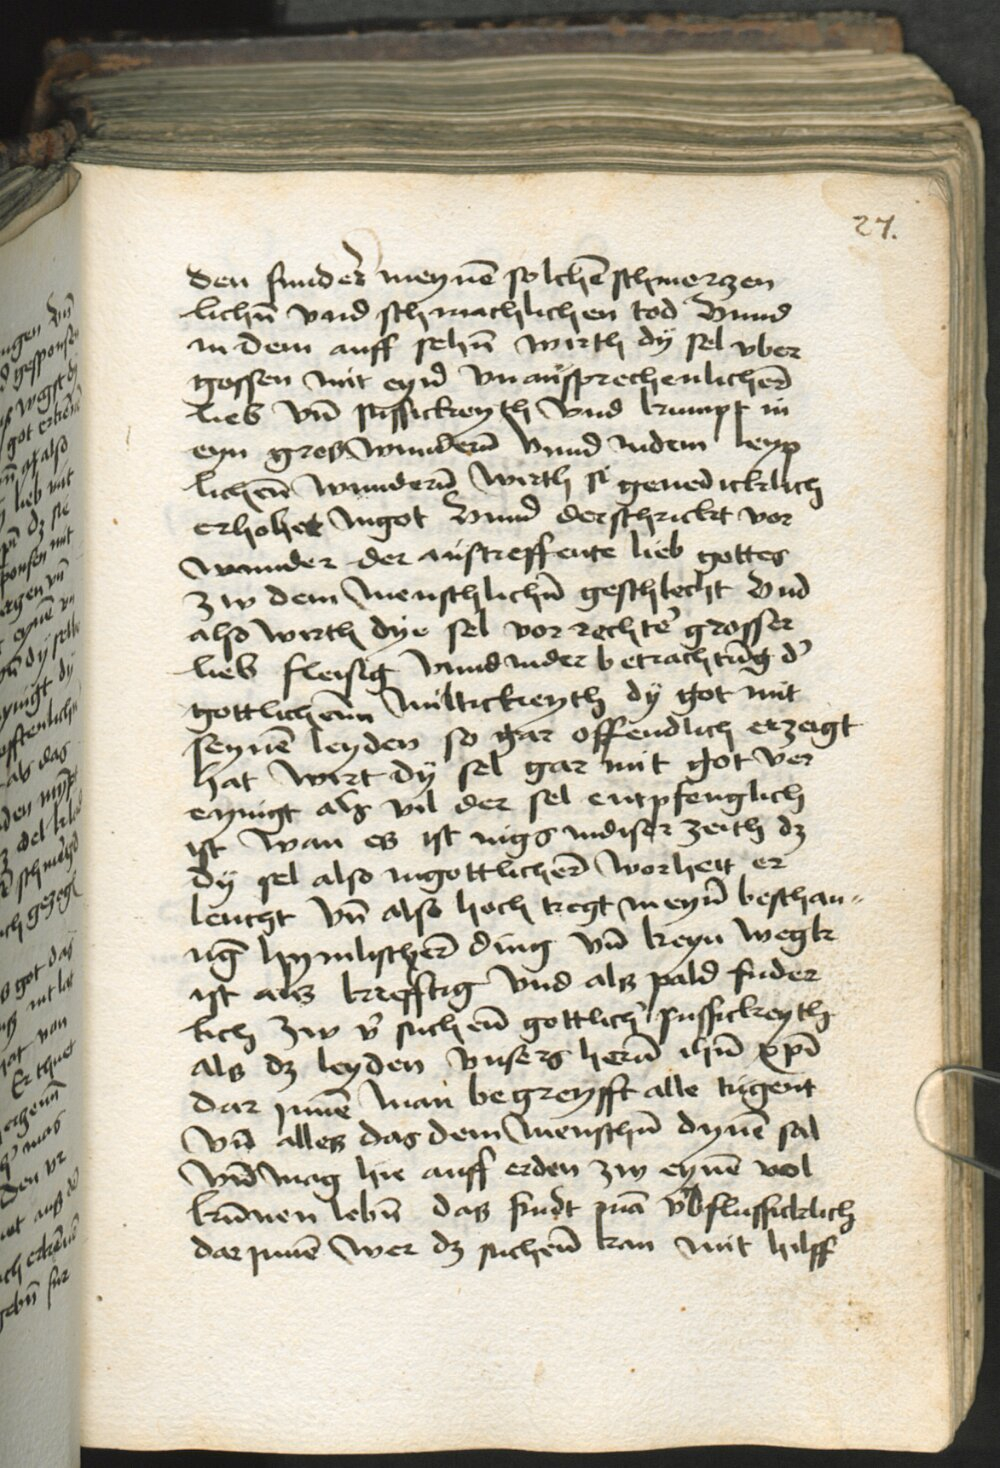 27.
den sunder meynē solchē schmerczen
lichn̄ vnd schmachlichen tod Vnnd
in dem auff sehn̄ wirth dÿ sel vber
gossen mit eyn̄ vnaußsprechenlicher
lieb vn̄ sussickeyth vnd kumpt in
eyn gros wundern̄ Vnnd indem leyp
lichenn̄ wundern̄ wirth si genedicklich
erhohet ingot Vnnd derschrickt vor
wunder der austreffente lieb gottes
zw dem menschlichn̄ geschlecht Vnd
also wirth dye sel vor rechtē grosser
lieb fleisig vnnd inder betrachtūg d'
gottlichenn miltickeyth dÿ got mit
seynē leyden so gar offendlich erzeigt
hat wirt dÿ sel gar mit got ver
eynigt als vil der sel entpfenglich
ist wan es ist nigs indiser zeith dz
dÿ sel also ingottlicher worheit er
leucht vn̄ also hoch tregt in eyn̄ beschau-
nḡ hymlischer ding vn̄ keyn wegk
ist als krefftig vnd als pald suder
lich zw v' suchen̄ gottlich' sussickeyth
als dz leyden vnsers hern̄ ihū xpī
dar jnnē man begreyfft alle tugent
vn̄ alles das dem menschn̄ dynē sal
vnd mag hie auff erden zw eynē vol
kūmen lebn̄ das findt mā vb'flussicklich
dar jnnē wer dz suchen̄ kan mit hilff